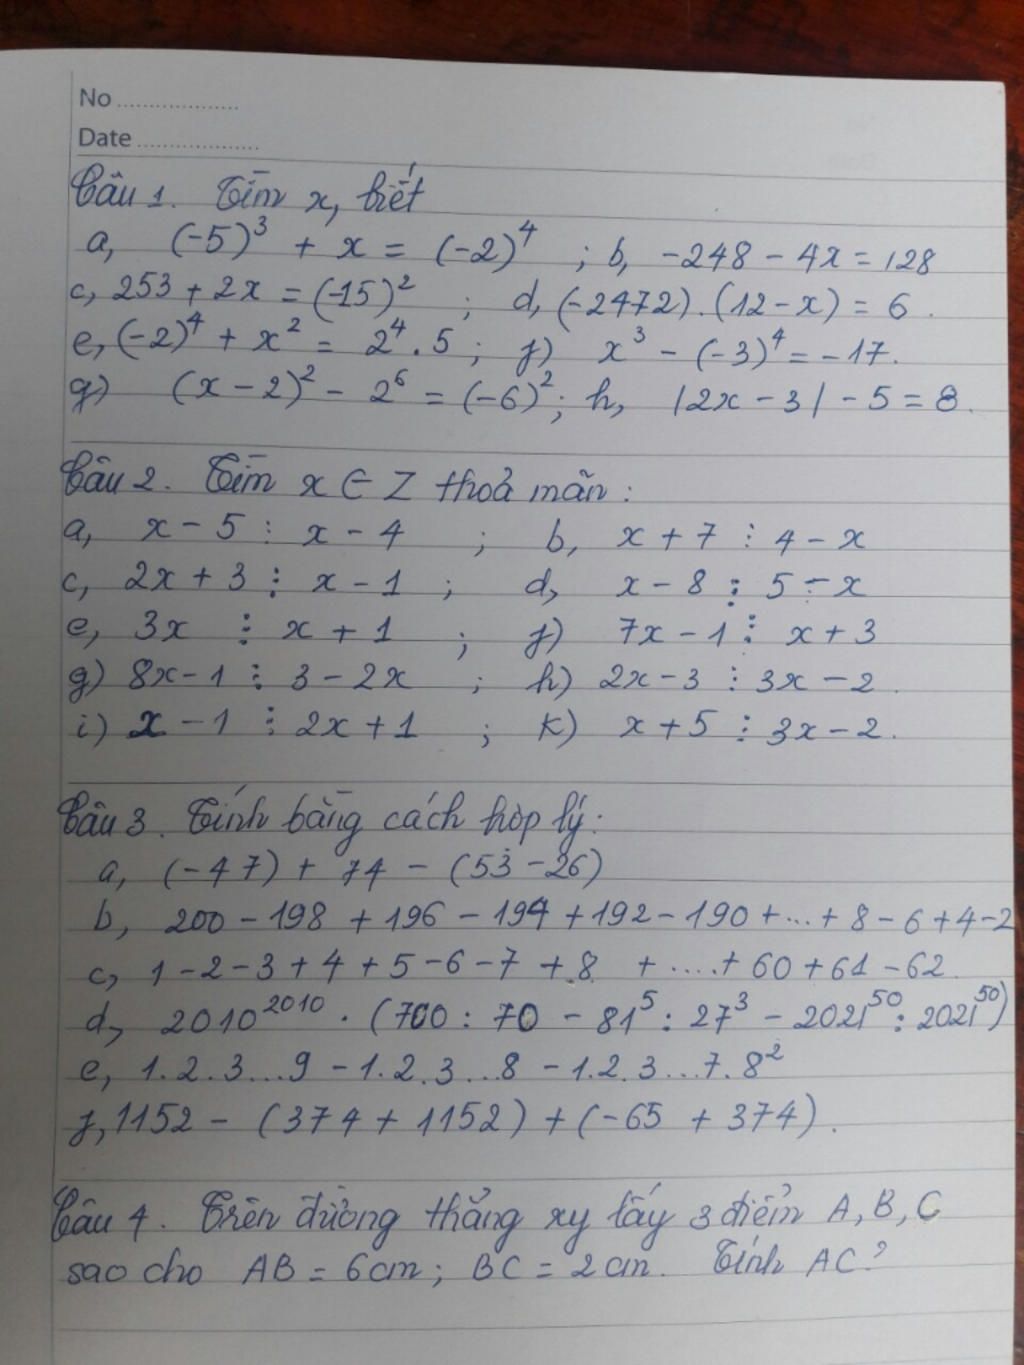 No
Date
Câu 1. Tìm x, biết
a, (-5)³ + x = (-2)⁴ ; b, -248 - 4x = 128
c, 253 + 2x = (-15)² ; d, (-2472).(12-x) = 6.
e, (-2)⁴ + x² = 2⁴.5 ; f) x³ - (-3)⁴ = -17.
g) (x-2)² - 2⁶ = (-6)² ; h, |2x-3| - 5 = 8.
Câu 2. Tìm x ∈ Z thoả mãn :
a, x - 5 ⋮ x - 4 ; b, x + 7 ⋮ 4 - x
c, 2x + 3 ⋮ x - 1 ; d, x - 8 ⋮ 5 - x
e, 3x ⋮ x + 1 ; f) 7x - 1 ⋮ x + 3
g) 8x - 1 ⋮ 3 - 2x ; h) 2x - 3 ⋮ 3x - 2.
i) x - 1 ⋮ 2x + 1 ; k) x + 5 ⋮ 3x - 2.
Câu 3. Tính bằng cách hợp lý:
a, (-47) + 74 - (53 - 26)
b, 200 - 198 + 196 - 194 + 192 - 190 + ... + 8 - 6 + 4 - 2
c, 1 - 2 - 3 + 4 + 5 - 6 - 7 + 8 + .... + 60 + 61 - 62.
d, 2010²⁰¹⁰ . (700 : 70 - 81⁵ : 27³ - 2021⁵⁰ : 2021⁵⁰)
e, 1.2.3...9 - 1.2.3...8 - 1.2.3...7.8²
f, 1152 - (374 + 1152) + (-65 + 374).
Câu 4. Trên đường thẳng xy lấy 3 điểm A, B, C
sao cho AB = 6cm ; BC = 2cm. Tính AC?